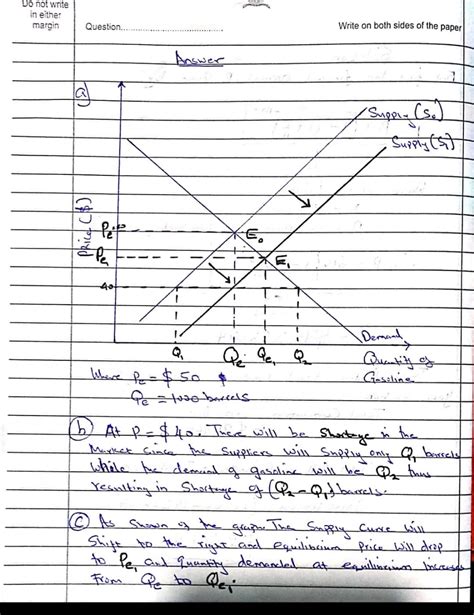 Do not write
in either
margin
Question
Write on both sides of the paper
Answer
a)
Supply (S₀)
Supply (S₁)
Price ($)
Pe
E₀
Pe₁
E₁
40
Demand
Q₁ Qe Qe₁ Q₂
Quantity of
Gasoline
Where Pe = $ 50
Qe = 1000 barrels
(b) At P = $ 40. There will be Shortage in the
Market Since the Suppliers will Supply only Q₁ barrels
While the demand of gasoline will be Q₂ thus
resulting in Shortage of (Q₂ - Q₁) barrels.
(c) As Shown of the graph The Supply Curve will
Shift to the right and equilibrium price will drop
to Pe₁ and quantity demanded at equilibrium increases
From Qe to Qe₁.